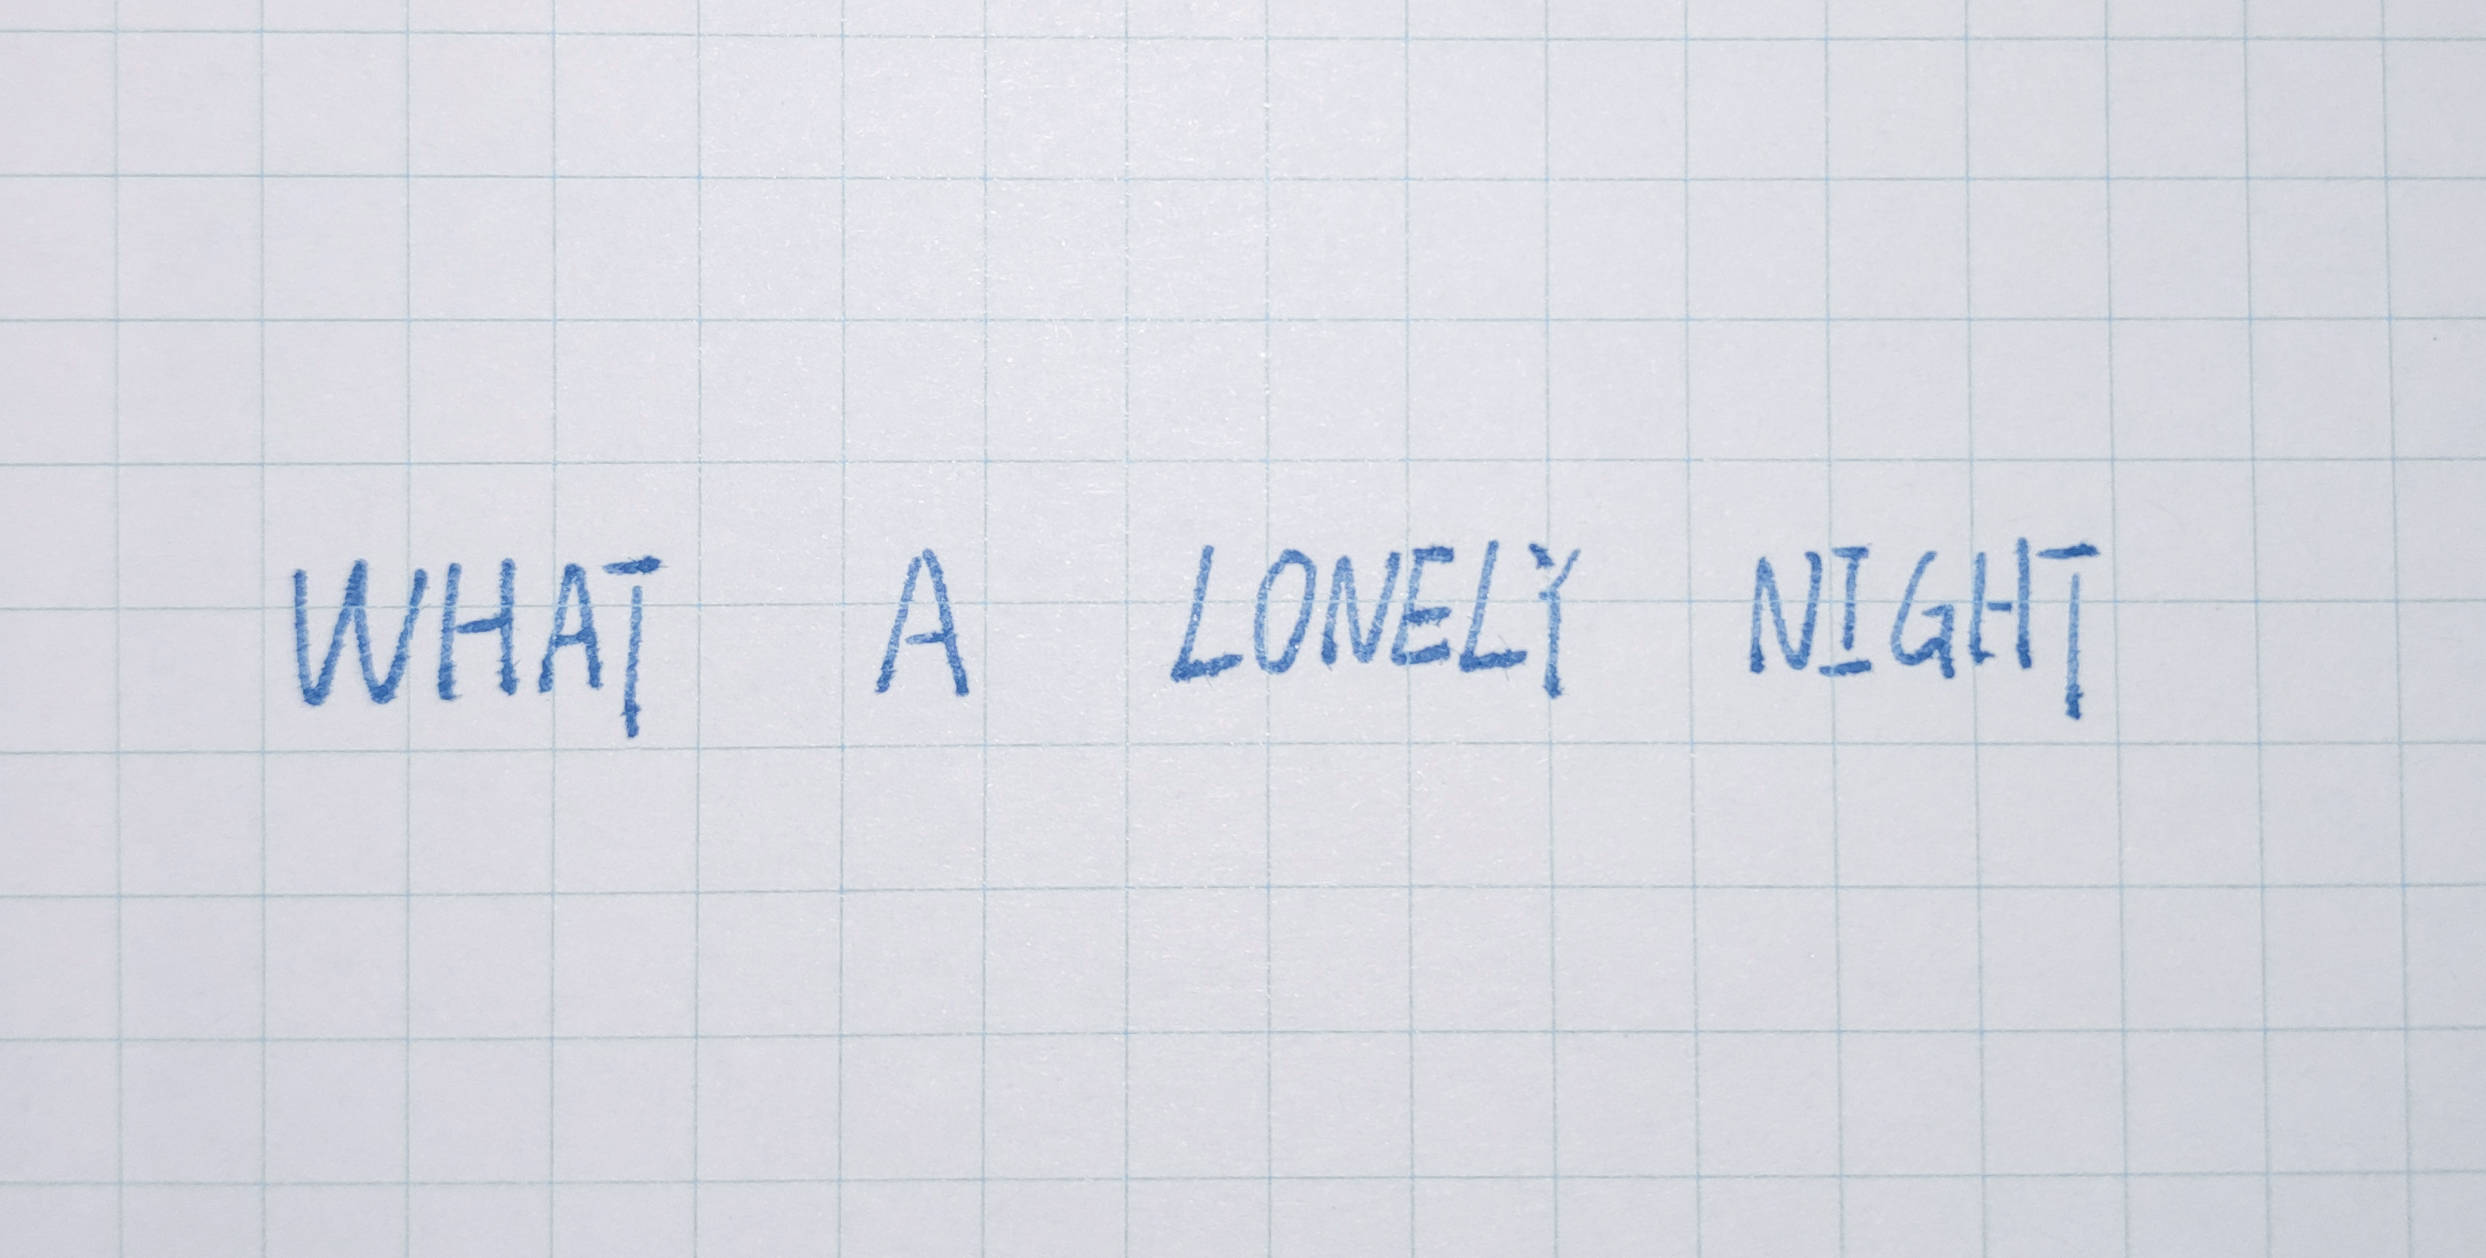 WHAT A LONELY NIGHT